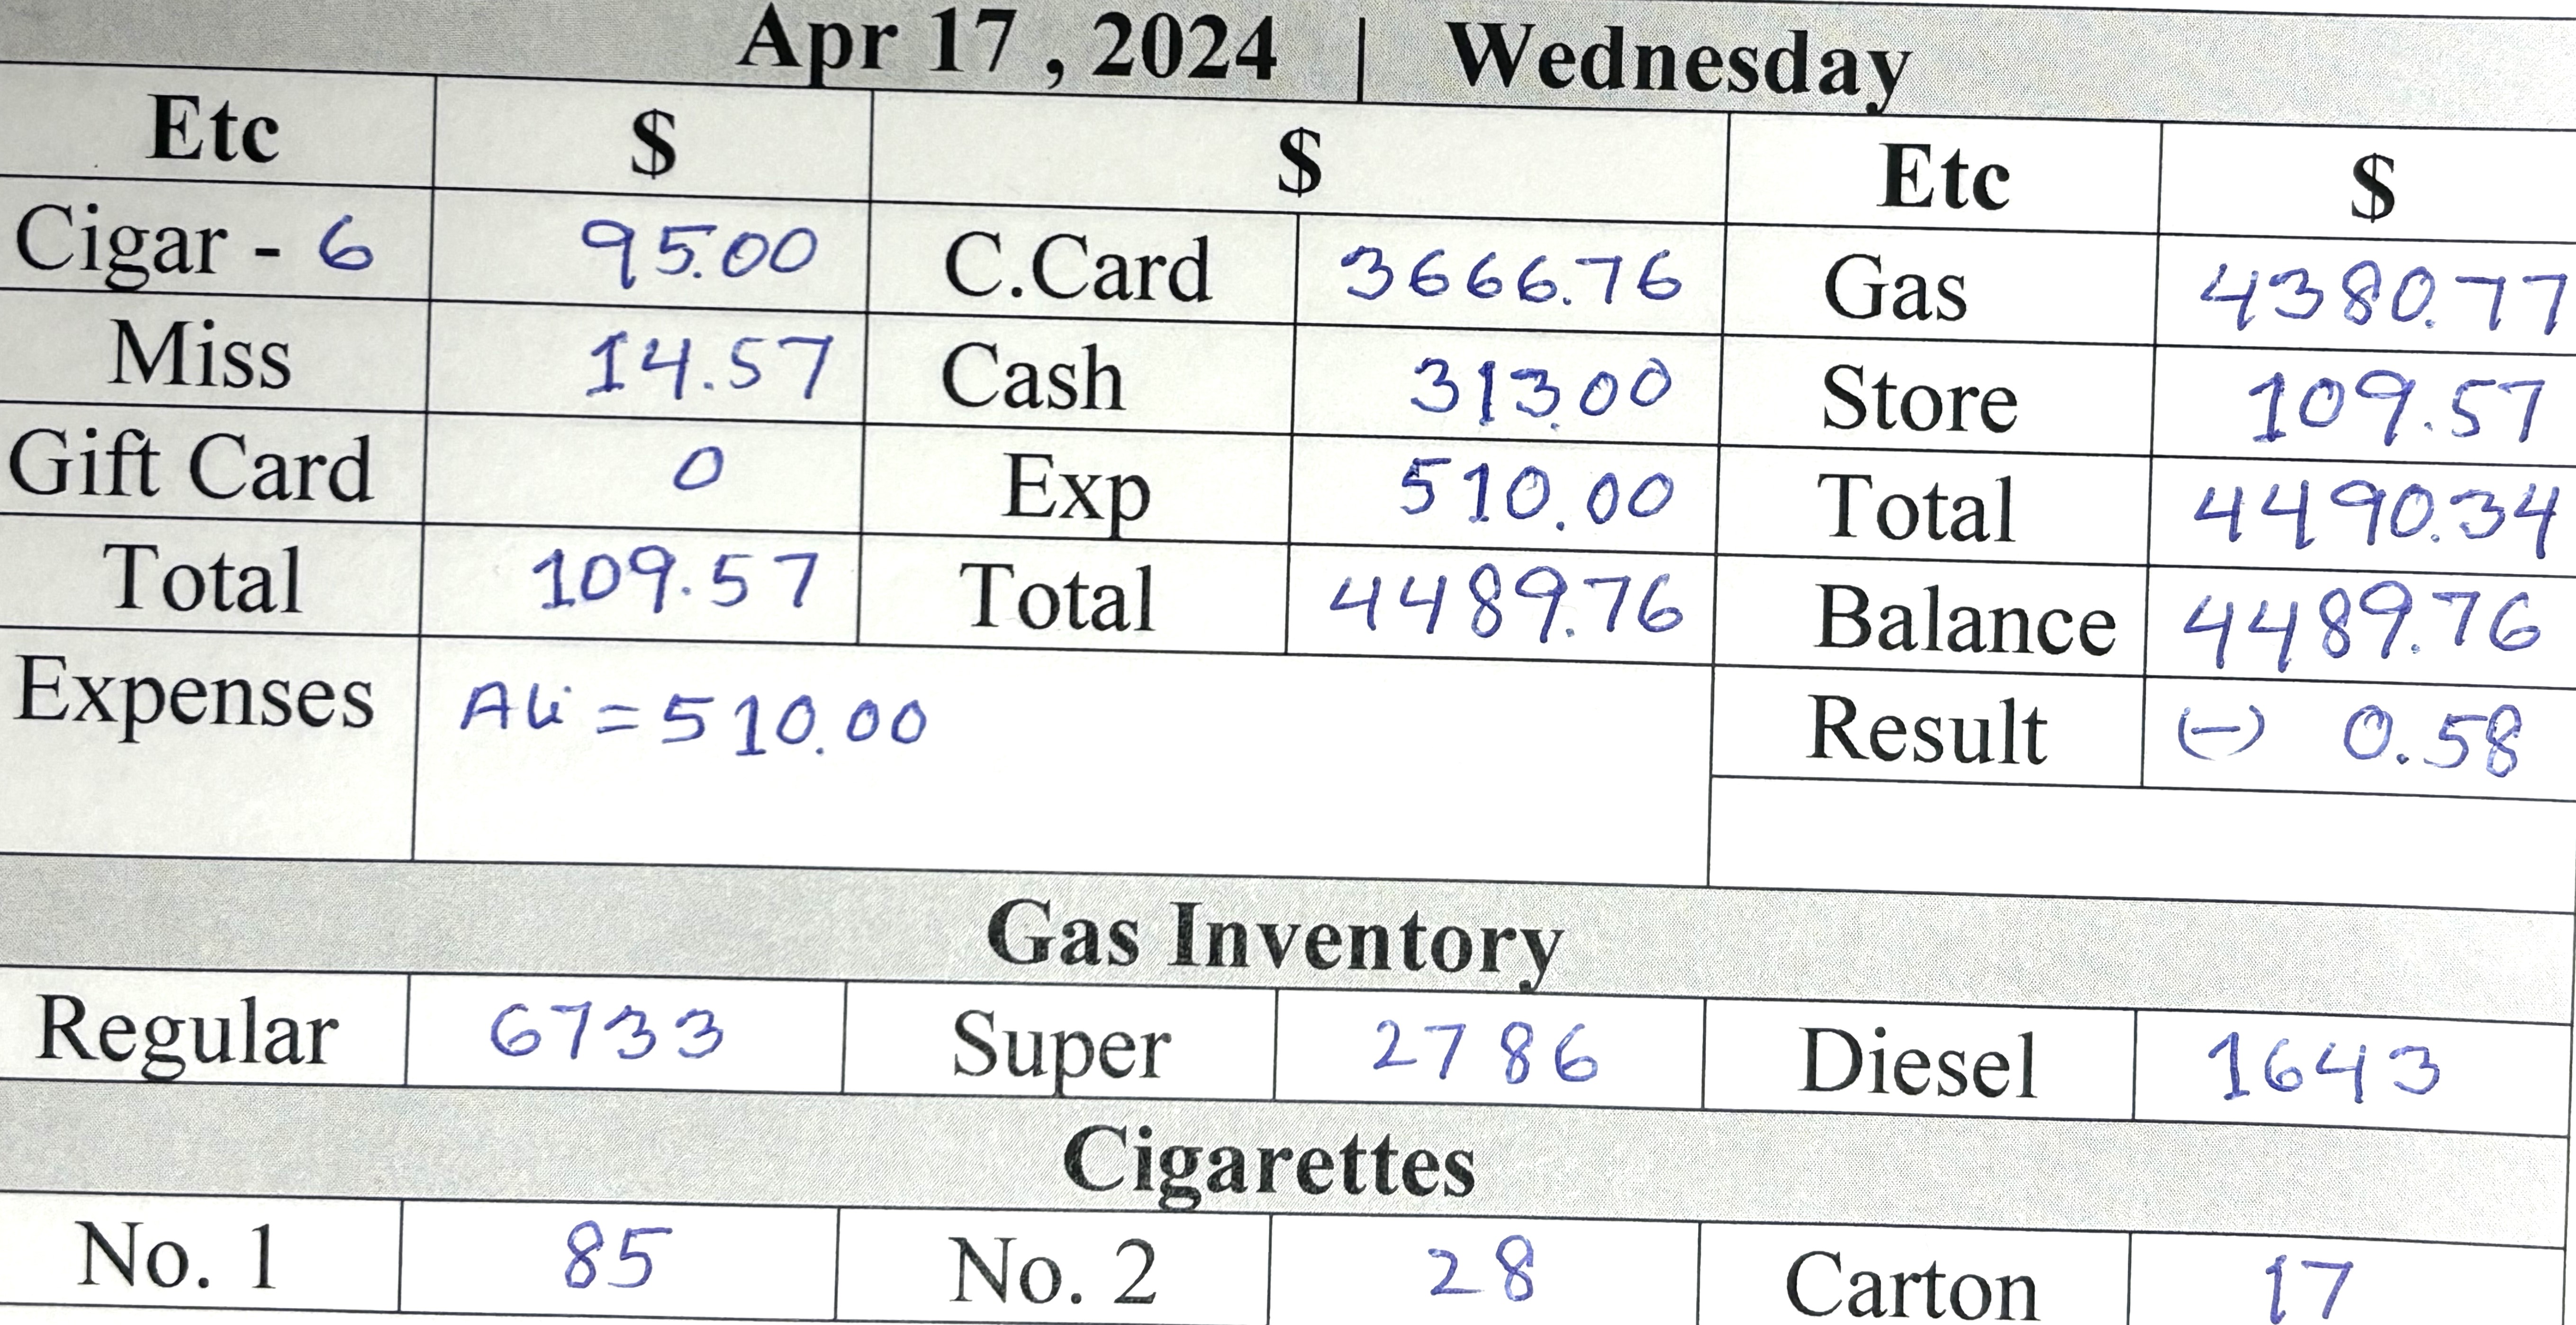 Apr 17 , 2024 | Wednesday
Etc $ $ Etc $
Cigar - 6 95.00 C.Card 3666.76 Gas 4380.77
Miss 14.57 Cash 313.00 Store 109.57
Gift Card 0 Exp 510.00 Total 4490.34
Total 109.57 Total 4489.76 Balance 4489.76
Expenses Ali = 510.00 Result (-) 0.58
Gas Inventory
Regular 6733 Super 2786 Diesel 1643
Cigarettes
No. 1 85 No. 2 28 Carton 17